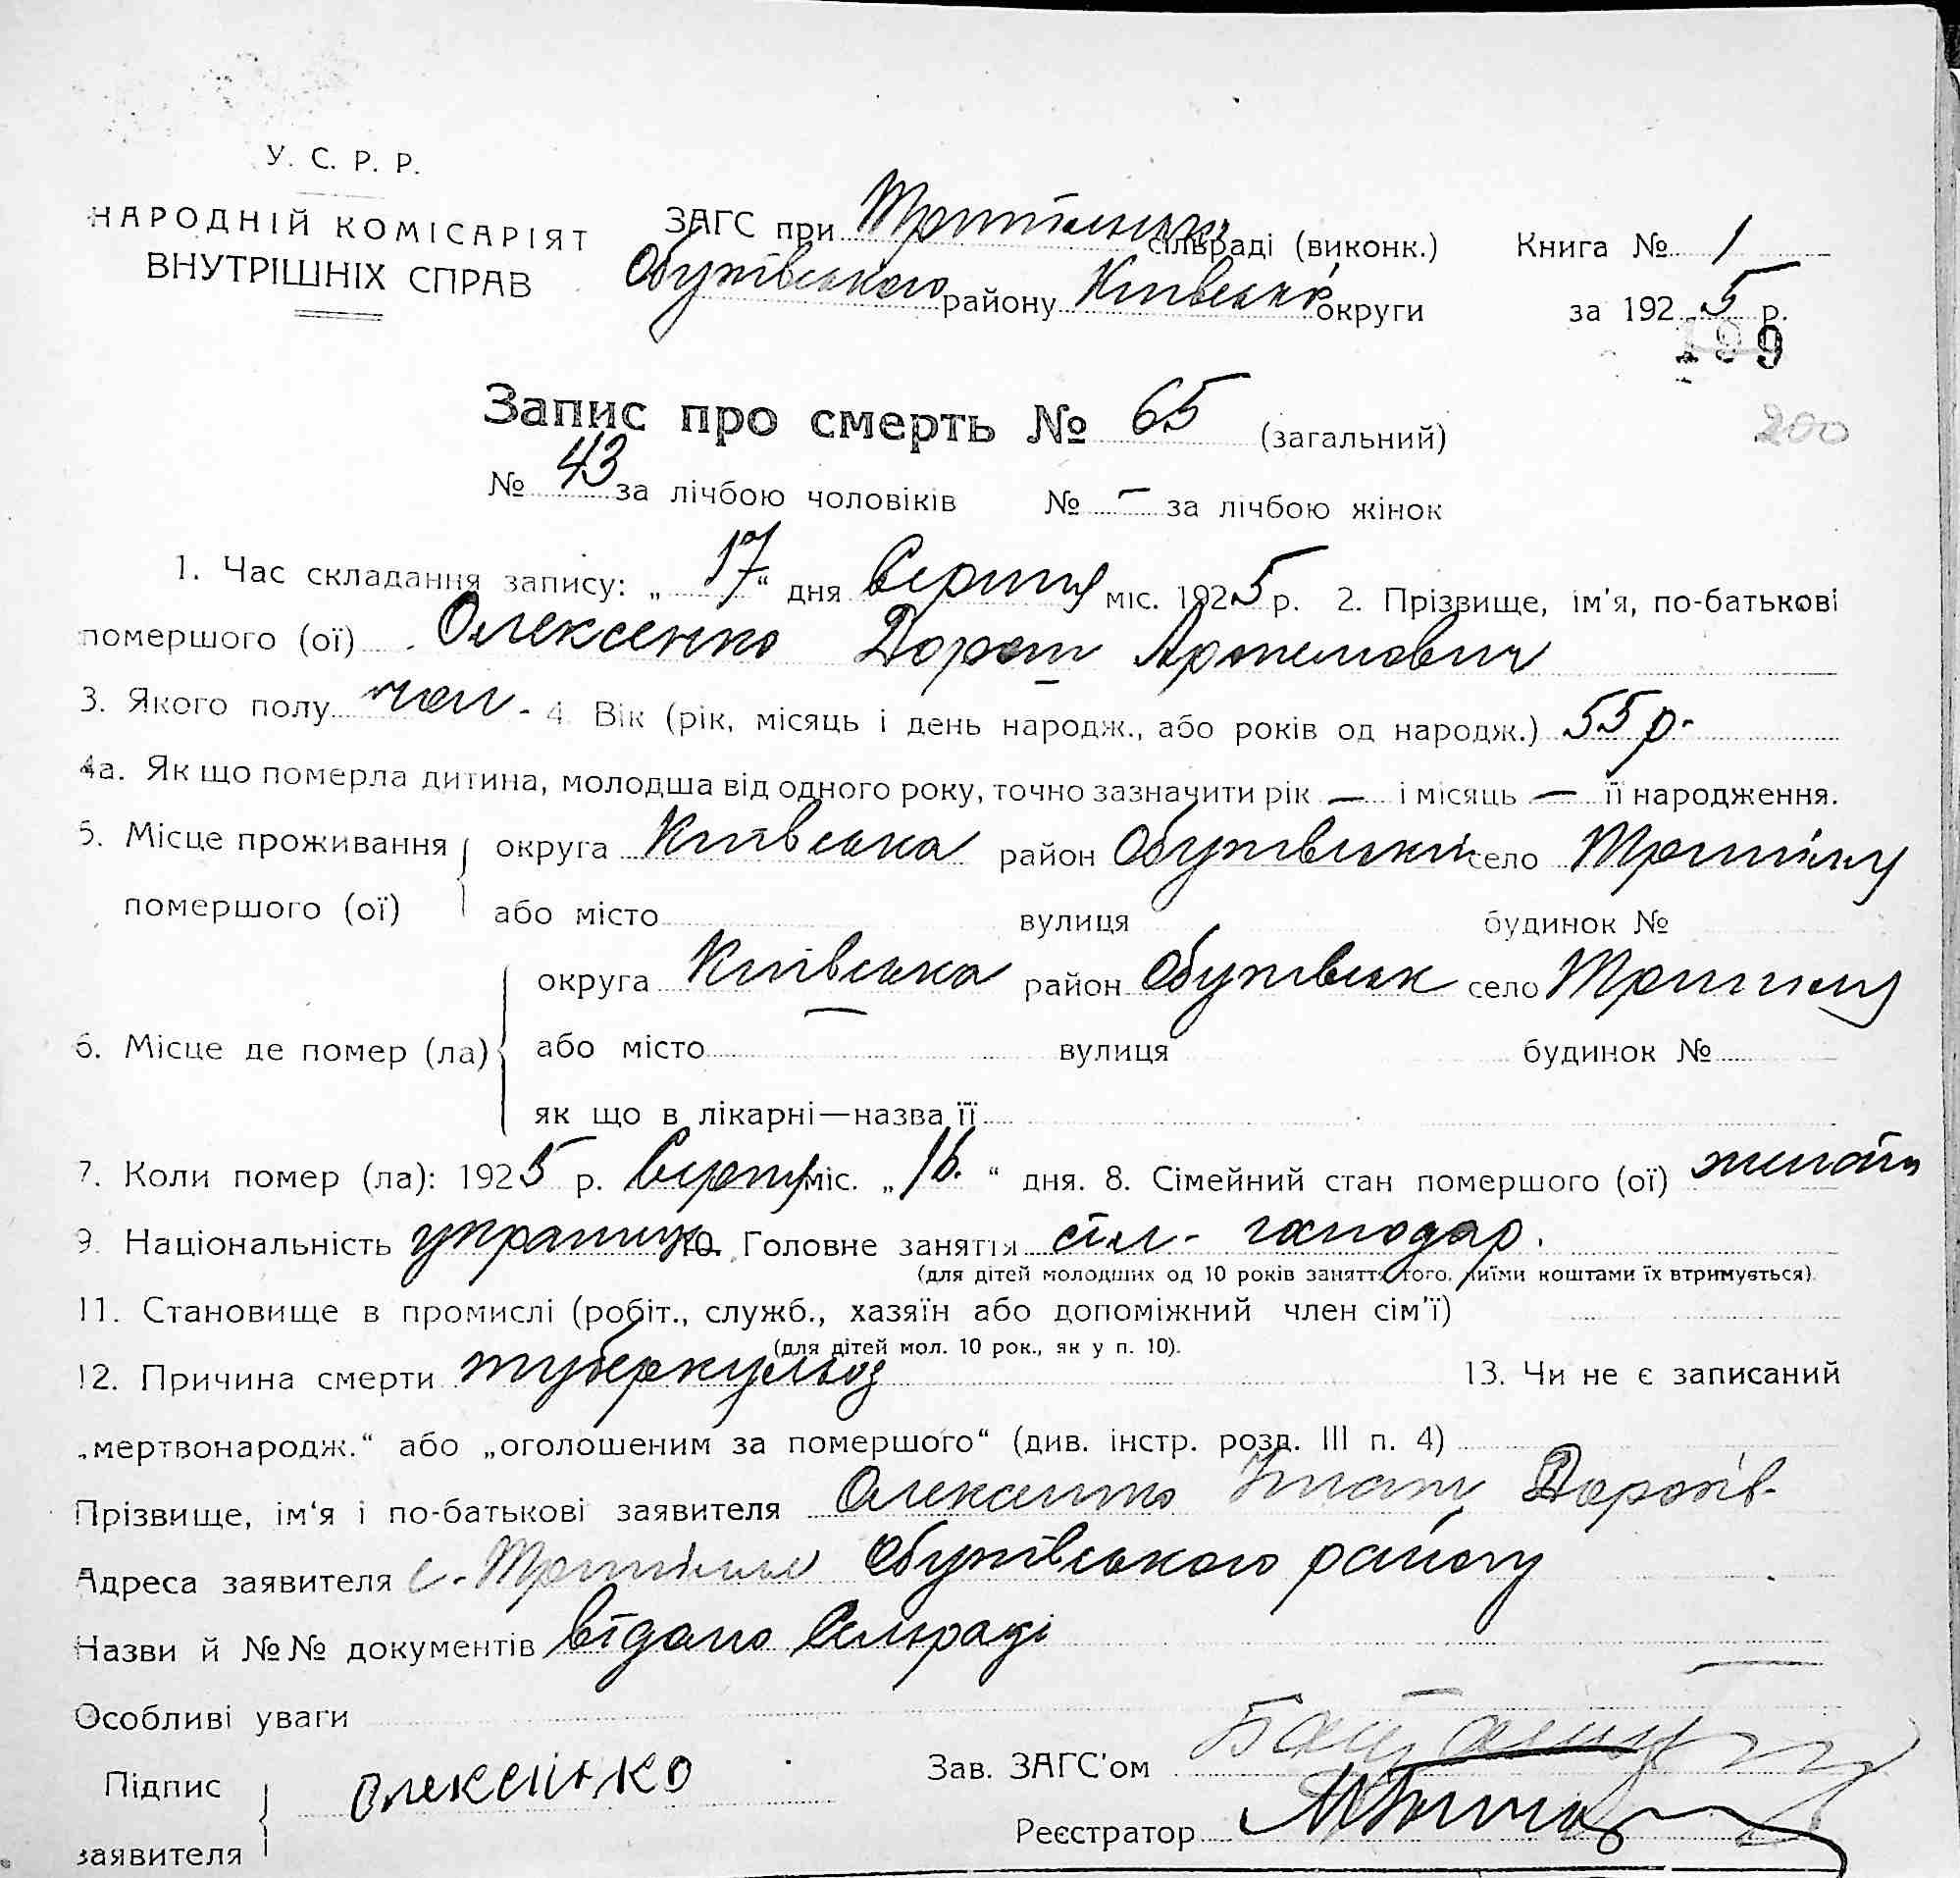 У. С. Р. Р.
НАРОДНІЙ КОМІСАРІЯТ
ВНУТРІШНІХ СПРАВ
ЗАГС при сільраді (виконк.) Книга № 1
Обухівського району Київсько округи за 1925 р.
199
200
Запис про смерть № 65 (загальний)
№ 43 за лічбою чоловіків № — за лічбою жінок
1. Час складання запису: „ 17 “ дня Серпня міс. 1925 р. 2. Прізвище, ім'я, по-батькові
помершого (ої) Олексенко Дорот Артемович
3. Якого полу чол - 4. Вік (рік, місяць і день народж., або років од народж.) 55 р.
4а. Як що померла дитина, молодша від одного року, точно зазначити рік — і місяць — її народження.
5. Місце проживання округа Київська район Обухівський село
помершого (ої) або місто вулиця будинок №
округа Київська район Обухівськ село
6. Місце де помер (ла) або місто вулиця будинок №
як що в лікарні—назва її
7. Коли помер (ла): 1925 р. Серпня міс. „ 16. “ дня. 8. Сімейний стан помершого (ої)
9. Національність 10. Головне заняття сіл - господар.
(для дітей молодших од 10 років заняття того, чиїми коштами їх втримується).
11. Становище в промислі (робіт., служб., хазяїн або допоміжний член сім'ї)
(для дітей мол. 10 рок., як у п. 10).
12. Причина смерти туберкульоз 13. Чи не є записаний
„мертвонародж.“ або „оголошеним за помершого“ (див. інстр. розд. III п. 4)
Прізвище, ім'я і по-батькові заявителя Олексенко Доротів-
Адреса заявителя с. Обухівського району
Назви й №№ документів видано Сельраді
Особливі уваги
Підпис Олексенко Зав. ЗАГС'ом
заявителя Реєстратор